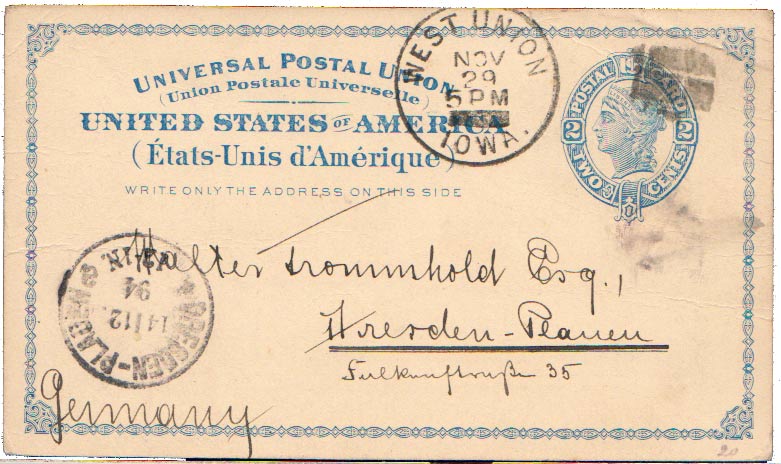 UNIVERSAL POSTAL UNION
(Union Postale Universelle)
UNITED STATES OF AMERICA
(États-Unis d'Amérique)
WRITE ONLY THE ADDRESS ON THIS SIDE
WEST UNION
NOV
29
5 PM
IOWA.
POSTAL CARD
2 2
TWO CENTS
Walter Trommhold Esq.,
Dresden-Plauen
Falkenstraße 35
Germany
DRESDEN-PLAUEN
14/12
94
20